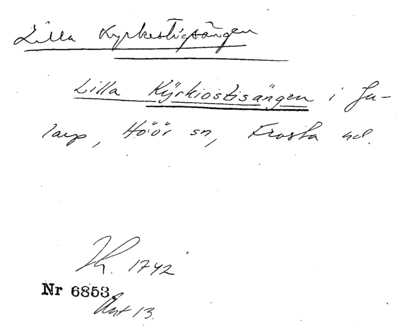 Lilla Kyrkestigsängen
Lilla Kÿrkiostisängen i Ju-
larp, Höör sn, Frosta hd.
Lh. 1742
Nr 6853
Akt 13.